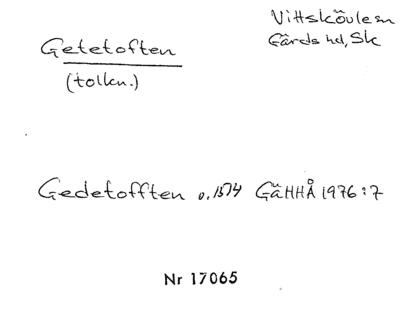 Getetoften
(tolkn.)
Vittskövle sn
Gärds hd, Sk
Gedetofften o. 1574 GäHHÅ 1976:7
Nr 17065